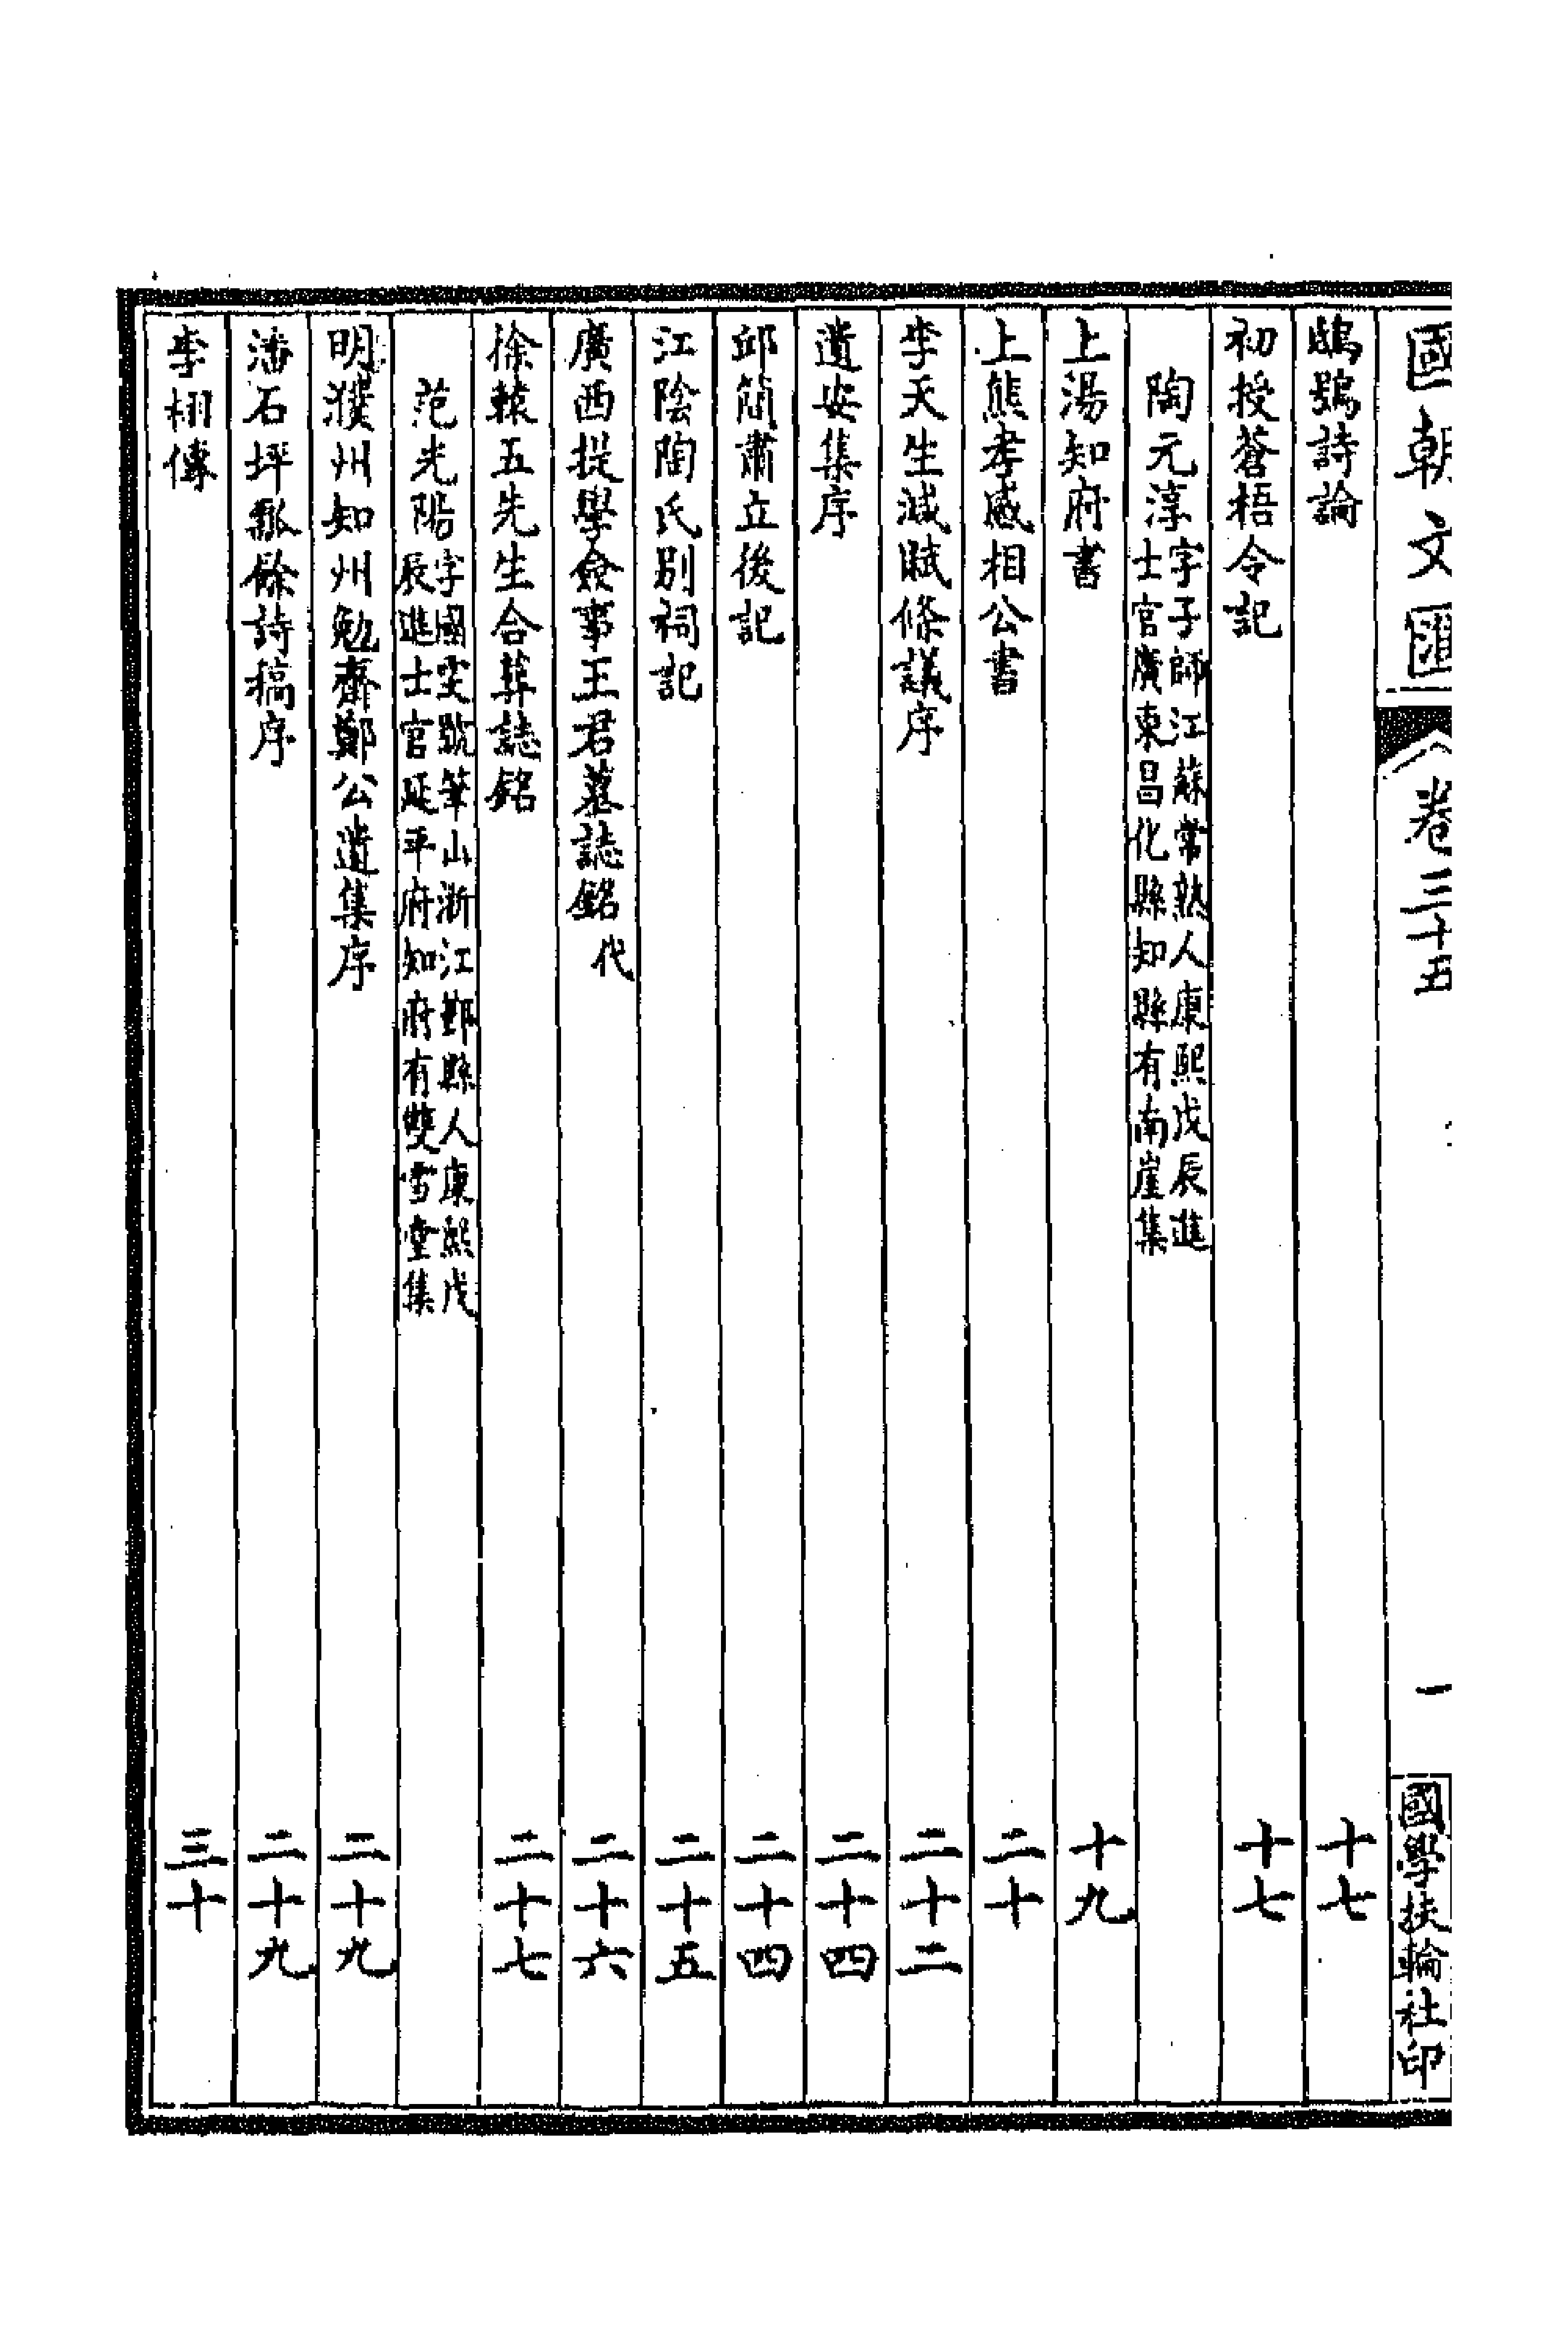 國朝文匯 卷三十五 一 國學扶輪社印
鴟鴞詩論 十七
初授蒼梧令記 十七
陶元淳字子師江蘇常熟人康熙戊辰進
士官廣東昌化縣知縣有南崖集
上湯知府書 十九
上熊孝感相公書 二十
李天生減賦條議序 二十二
遺安集序 二十四
邱簡肅立後記 二十四
江陰陶氏別祠記 二十五
廣西提學僉事王君墓誌銘代 二十六
徐轅五先生合葬誌銘 二十七
范光陽字國雯號筆山浙江鄞縣人康熙戊
辰進士官延平府知府有雙雪堂集
明濮州知州勉齋鄭公遺集序 二十九
潘石坪瓢餘詩稿序 二十九
李栩傳 三十